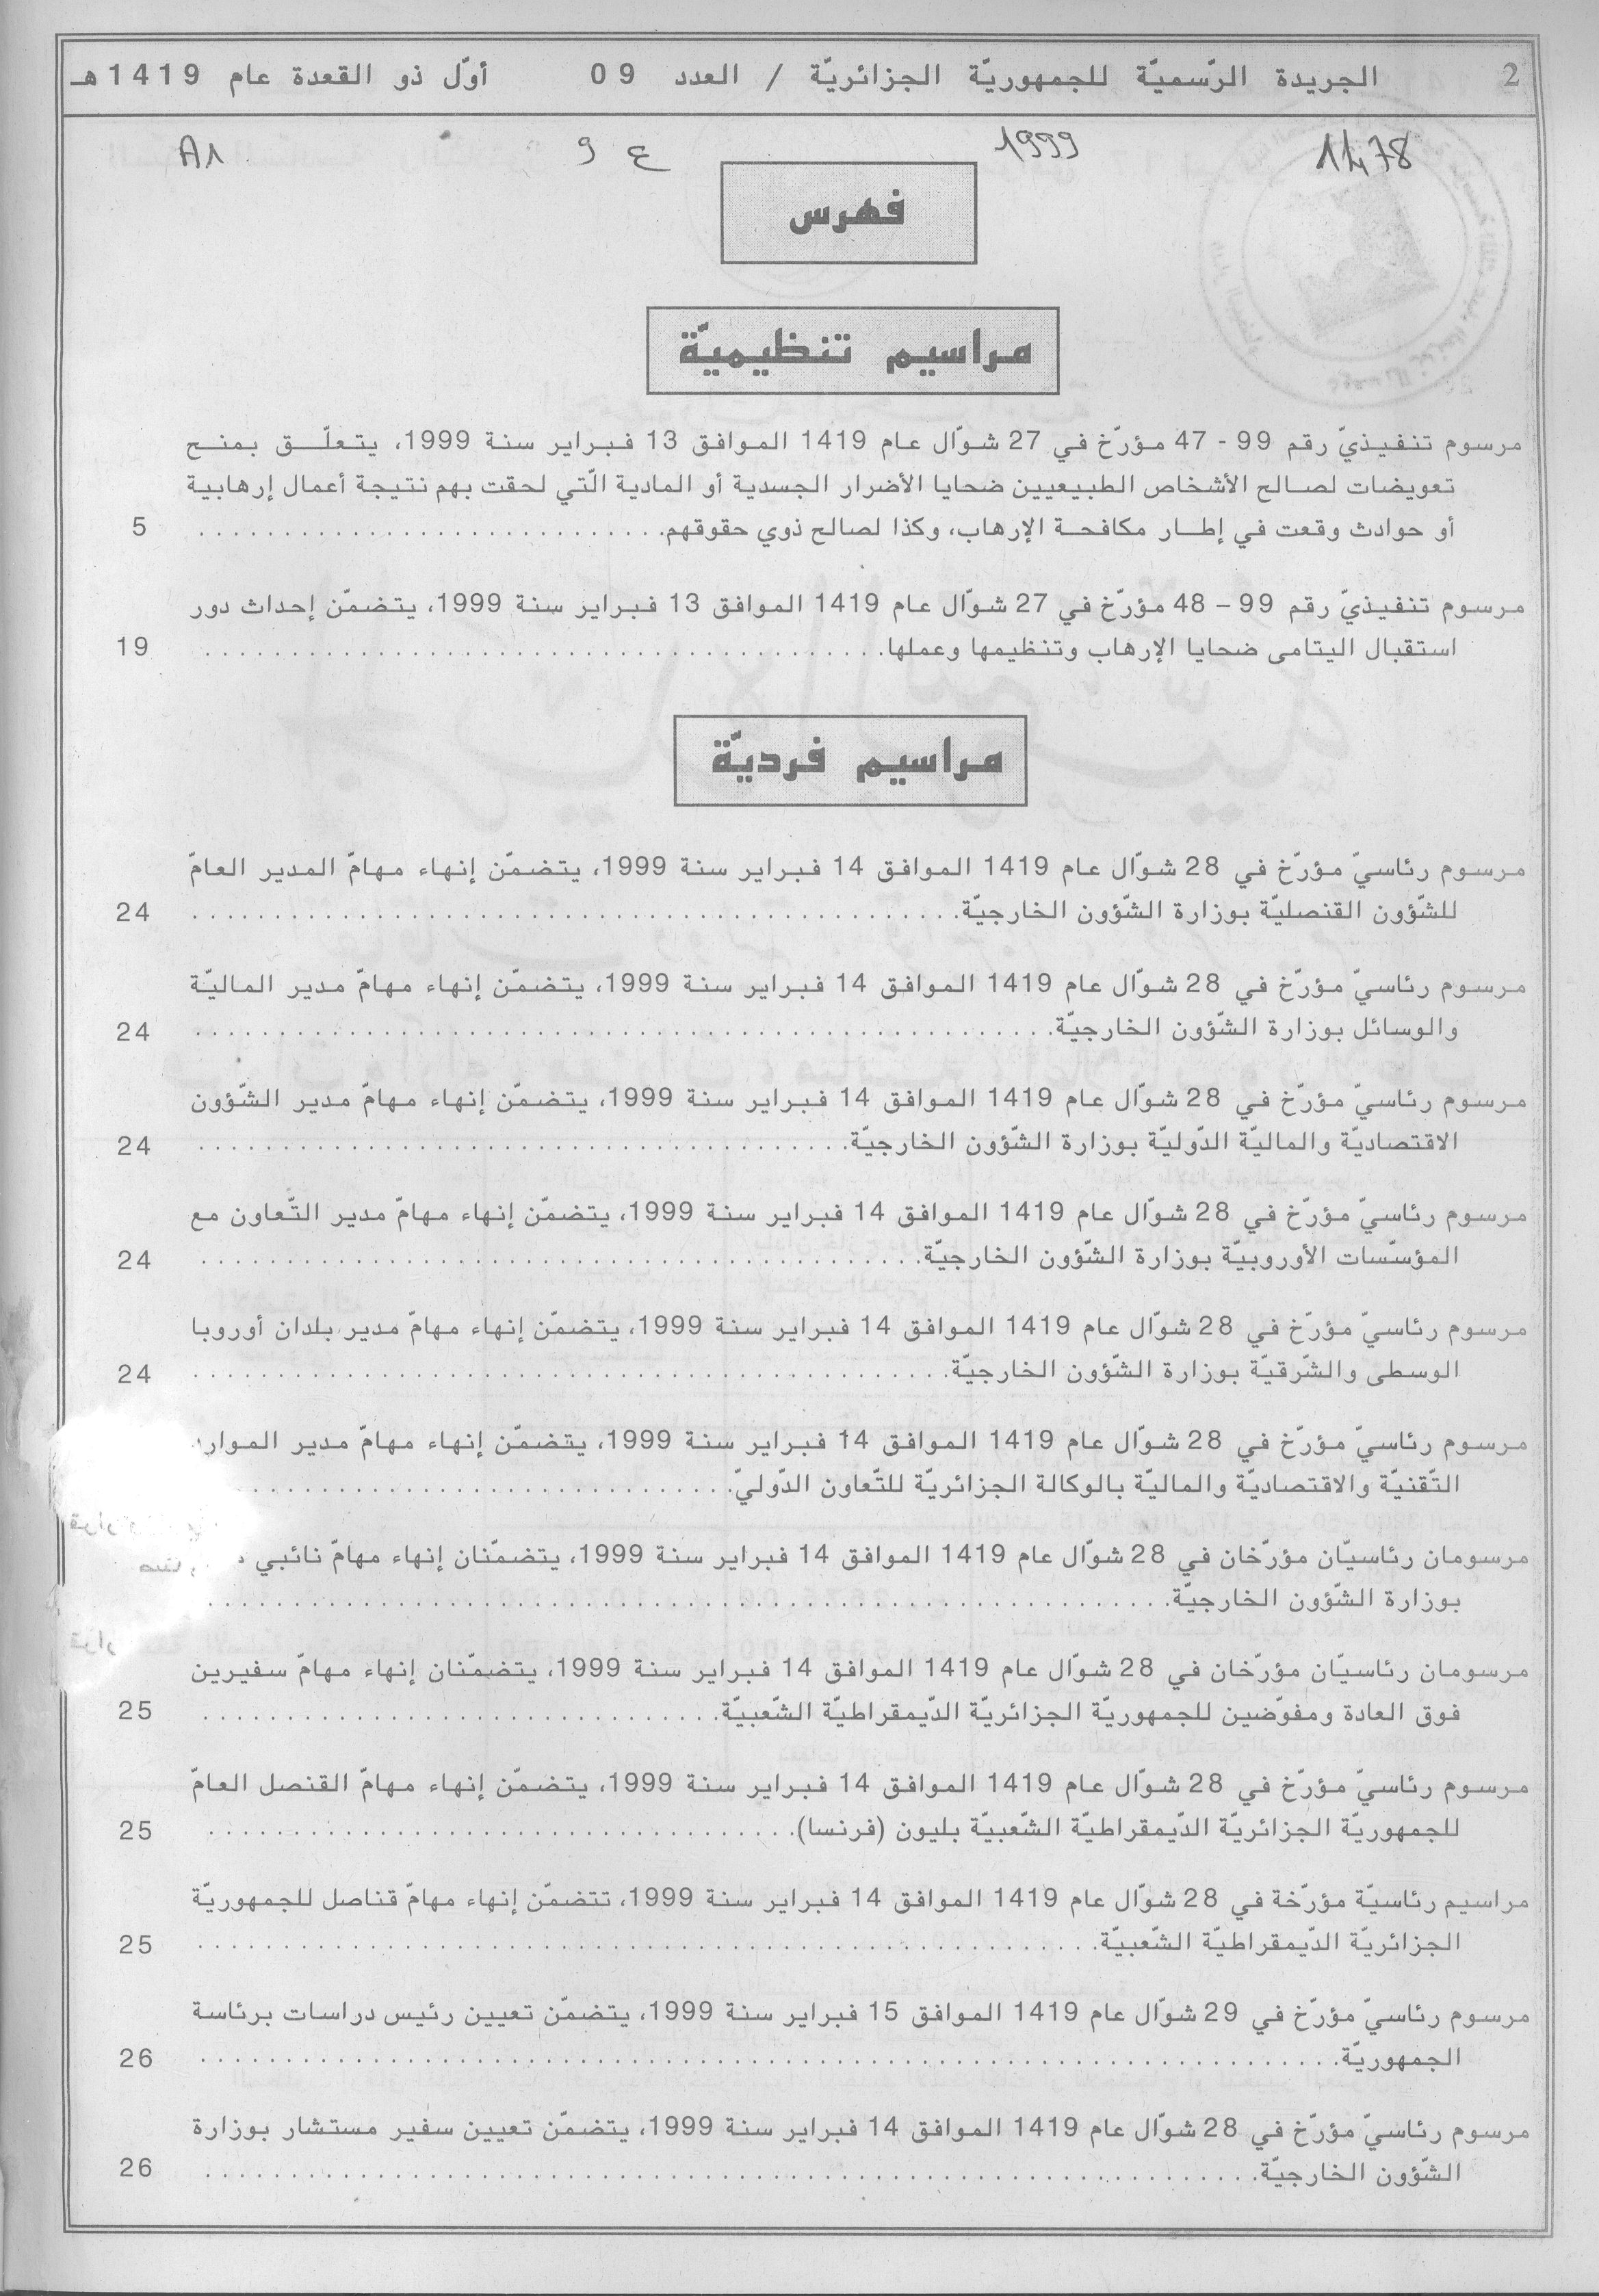 2 الجريدة الرّسميّة للجمهوريّة الجزائريّة / العدد 09 أوّل ذو القعدة عام 1419هـ
1478 1999 ع 9 A1
فهرس
مراسيم تنظيميّة
مرسوم تنفيذيّ رقم 99 - 47 مؤرّخ في 27 شوّال عام 1419 الموافق 13 فبراير سنة 1999، يتعلّق بمنح
تعويضات لصالح الأشخاص الطبيعيين ضحايا الأضرار الجسدية أو المادية الّتي لحقت بهم نتيجة أعمال إرهابية
أو حوادث وقعت في إطار مكافحة الإرهاب، وكذا لصالح ذوي حقوقهم. . . . . . . . . . . . . . . . . . . . . . . . . . . 5
مرسوم تنفيذيّ رقم 99 – 48 مؤرّخ في 27 شوّال عام 1419 الموافق 13 فبراير سنة 1999، يتضمّن إحداث دور
استقبال اليتامى ضحايا الإرهاب وتنظيمها وعملها. . . . . . . . . . . . . . . . . . . . . . . . . . . 19
مراسيم فرديّة
مرسوم رئاسيّ مؤرّخ في 28 شوّال عام 1419 الموافق 14 فبراير سنة 1999، يتضمّن إنهاء مهامّ المدير العامّ
للشّؤون القنصليّة بوزارة الشّؤون الخارجيّة. . . . . . . . . . . . . . . . . . . . . . . . . . . 24
مرسوم رئاسيّ مؤرّخ في 28 شوّال عام 1419 الموافق 14 فبراير سنة 1999، يتضمّن إنهاء مهامّ مدير الماليّة
والوسائل بوزارة الشّؤون الخارجيّة. . . . . . . . . . . . . . . . . . . . . . . . . . . 24
مرسوم رئاسيّ مؤرّخ في 28 شوّال عام 1419 الموافق 14 فبراير سنة 1999، يتضمّن إنهاء مهامّ مدير الشّؤون
الاقتصاديّة والماليّة الدّوليّة بوزارة الشّؤون الخارجيّة. . . . . . . . . . . . . . . . . . . . . . . . . . . 24
مرسوم رئاسيّ مؤرّخ في 28 شوّال عام 1419 الموافق 14 فبراير سنة 1999، يتضمّن إنهاء مهامّ مدير التّعاون مع
المؤسّسات الأوروبيّة بوزارة الشّؤون الخارجيّة. . . . . . . . . . . . . . . . . . . . . . . . . . . 24
مرسوم رئاسيّ مؤرّخ في 28 شوّال عام 1419 الموافق 14 فبراير سنة 1999، يتضمّن إنهاء مهامّ مدير بلدان أوروبا
الوسطى والشّرقيّة بوزارة الشّؤون الخارجيّة. . . . . . . . . . . . . . . . . . . . . . . . . . . 24
مرسوم رئاسيّ مؤرّخ في 28 شوّال عام 1419 الموافق 14 فبراير سنة 1999، يتضمّن إنهاء مهامّ مدير
التّقنيّة والاقتصاديّة والماليّة بالوكالة الجزائريّة للتّعاون الدّوليّ. . . . . . . . . . . . . . . . . . . . . . . . .
مرسومان رئاسيّان مؤرّخان في 28 شوّال عام 1419 الموافق 14 فبراير سنة 1999، يتضمّنان إنهاء مهامّ نائبي
بوزارة الشّؤون الخارجيّة. . . . . . . . . . . . . . . . . . . . . . . . . . .
مرسومان رئاسيّان مؤرّخان في 28 شوّال عام 1419 الموافق 14 فبراير سنة 1999، يتضمّنان إنهاء مهامّ سفيرين
فوق العادة ومفوّضين للجمهوريّة الجزائريّة الدّيمقراطيّة الشّعبيّة. . . . . . . . . . . . . . . . . . . . . . . . . . . 25
مرسوم رئاسيّ مؤرّخ في 28 شوّال عام 1419 الموافق 14 فبراير سنة 1999، يتضمّن إنهاء مهامّ القنصل العامّ
للجمهوريّة الجزائريّة الدّيمقراطيّة الشّعبيّة بليون (فرنسا). . . . . . . . . . . . . . . . . . . . . . . . . . . 25
مراسيم رئاسيّة مؤرّخة في 28 شوّال عام 1419 الموافق 14 فبراير سنة 1999، تتضمّن إنهاء مهامّ قناصل للجمهوريّة
الجزائريّة الدّيمقراطيّة الشّعبيّة. . . . . . . . . . . . . . . . . . . . . . . . . . . 25
مرسوم رئاسيّ مؤرّخ في 29 شوّال عام 1419 الموافق 15 فبراير سنة 1999، يتضمّن تعيين رئيس دراسات برئاسة
الجمهوريّة. . . . . . . . . . . . . . . . . . . . . . . . . . . 26
مرسوم رئاسيّ مؤرّخ في 28 شوّال عام 1419 الموافق 14 فبراير سنة 1999، يتضمّن تعيين سفير مستشار بوزارة
الشّؤون الخارجيّة. . . . . . . . . . . . . . . . . . . . . . . . . . . 26